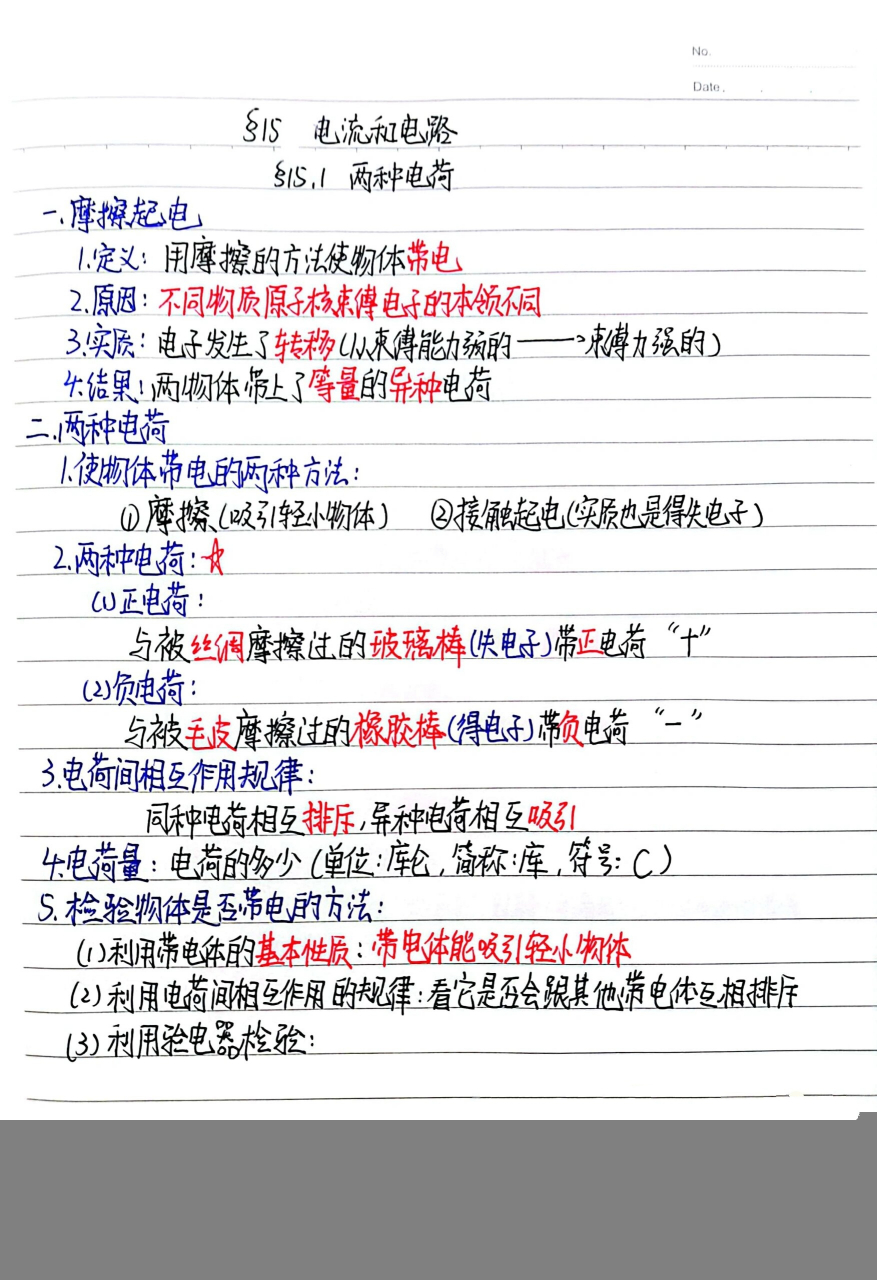 No.
Date . . .
§15 电流和电路
§15.1 两种电荷
一.摩擦起电
1.定义：用摩擦的方法使物体带电
2.原因：不同物质原子核束缚电子的本领不同
3.实质：电子发生了转移(从束缚能力弱的——→束缚力强的)
4.结果：两物体带上了等量的异种电荷
二.两种电荷
1.使物体带电的两种方法：
①摩擦(吸引轻小物体) ②接触起电(实质也是得失电子)
2.两种电荷：☆
(1)正电荷：
与被丝绸摩擦过的玻璃棒(失电子)带正电荷 “十”
(2)负电荷：
与被毛皮摩擦过的橡胶棒(得电子)带负电荷 “一”
3.电荷间相互作用规律：
同种电荷相互排斥,异种电荷相互吸引
4.电荷量：电荷的多少(单位：库仑,简称：库,符号：C)
5.检验物体是否带电的方法：
(1)利用带电体的基本性质：带电体能吸引轻小物体
(2)利用电荷间相互作用的规律：看它是否会跟其他带电体互相排斥
(3)利用验电器检验：